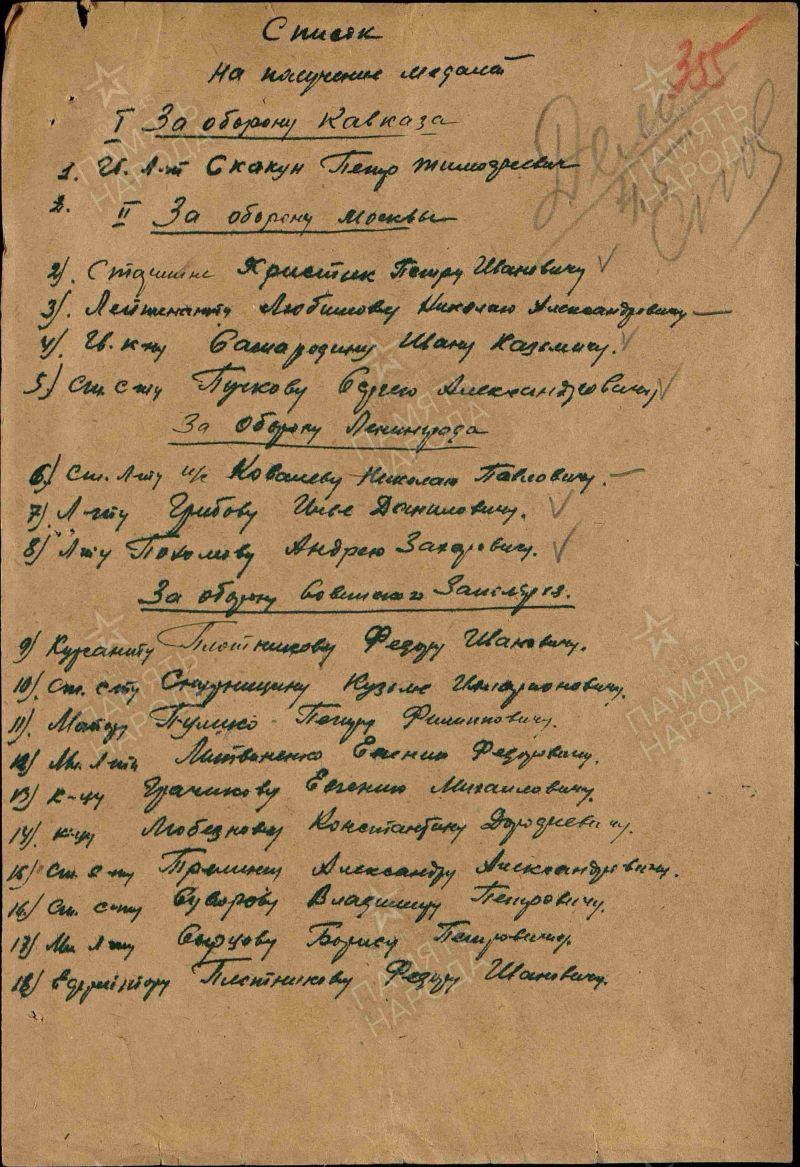 Список
355
на получение медалей
I За оборону Кавказа
Дело
1. Гв. Л-т Скакун Петр Тимофеевич
2. II За оборону Москвы
2). Старшине Христик Петру Ивановичу
3). Лейтенанту Любимову Николаю Александровичу —
4). Гв. к-ну Самородину Ивану Казьмичу.
5) Ст. с-ту Пучкову Сергею Александровичу
За оборону Ленинграда
6) Ст. Л-ту и/с Ковалеву Николаю Павловичу. —
7) Л-ту Грибову Илье Даниловичу.
8) Л-ту Похомову Андрею Захаровичу.
За оборону Советского Заполярья.
9) Курсанту Плотникову Федору Ивановичу.
10). Ст. с-ту Кузьме Илларионовичу.
11). Майору Пулико Петру Филипповичу.
12) Мл. Л-ту Литвиненко Евгению Федоровичу.
13) к-цу Грачикову Евгению Михайловичу.
14). к-цу Любезнову Константину Дорофеевичу.
15) Ст. с-ту Александру Александровичу.
16) Ст. с-ту Суворову Владимиру Петровичу.
17) Мл. Л-ту Сырцову Борису Петровичу.
18) Ефрейтору Плотникову Федору Ивановичу.
ПАМЯТЬ НАРОДА
ПАМЯТЬ НАРОДА
ПАМЯТЬ НАРОДА
ПАМЯТЬ НАРОДА
ПАМЯТЬ НАРОДА
ПАМЯТЬ НАРОДА